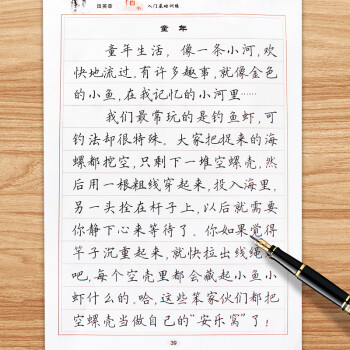 田英章
入门基础训练
童年
童年生活，像一条小河，欢
快地流过，有许多趣事，就像金色
的小鱼，在我记忆的小河里……
我们最常玩的是钓鱼虾，可
钓法却很特殊。大家把捉来的海
螺都挖空，只剩下一堆空螺壳，然
后用一根粗线穿起来，投入海里，
另一头拴在杆子上，以后就需要
你静下心来等待了。你如果觉得
竿子沉重起来，就快拉出线绳
吧，每个空壳里都会藏起小鱼小
虾什么的。哈，这些笨家伙们都把
空螺壳当做自己的“安乐窝”了！
39